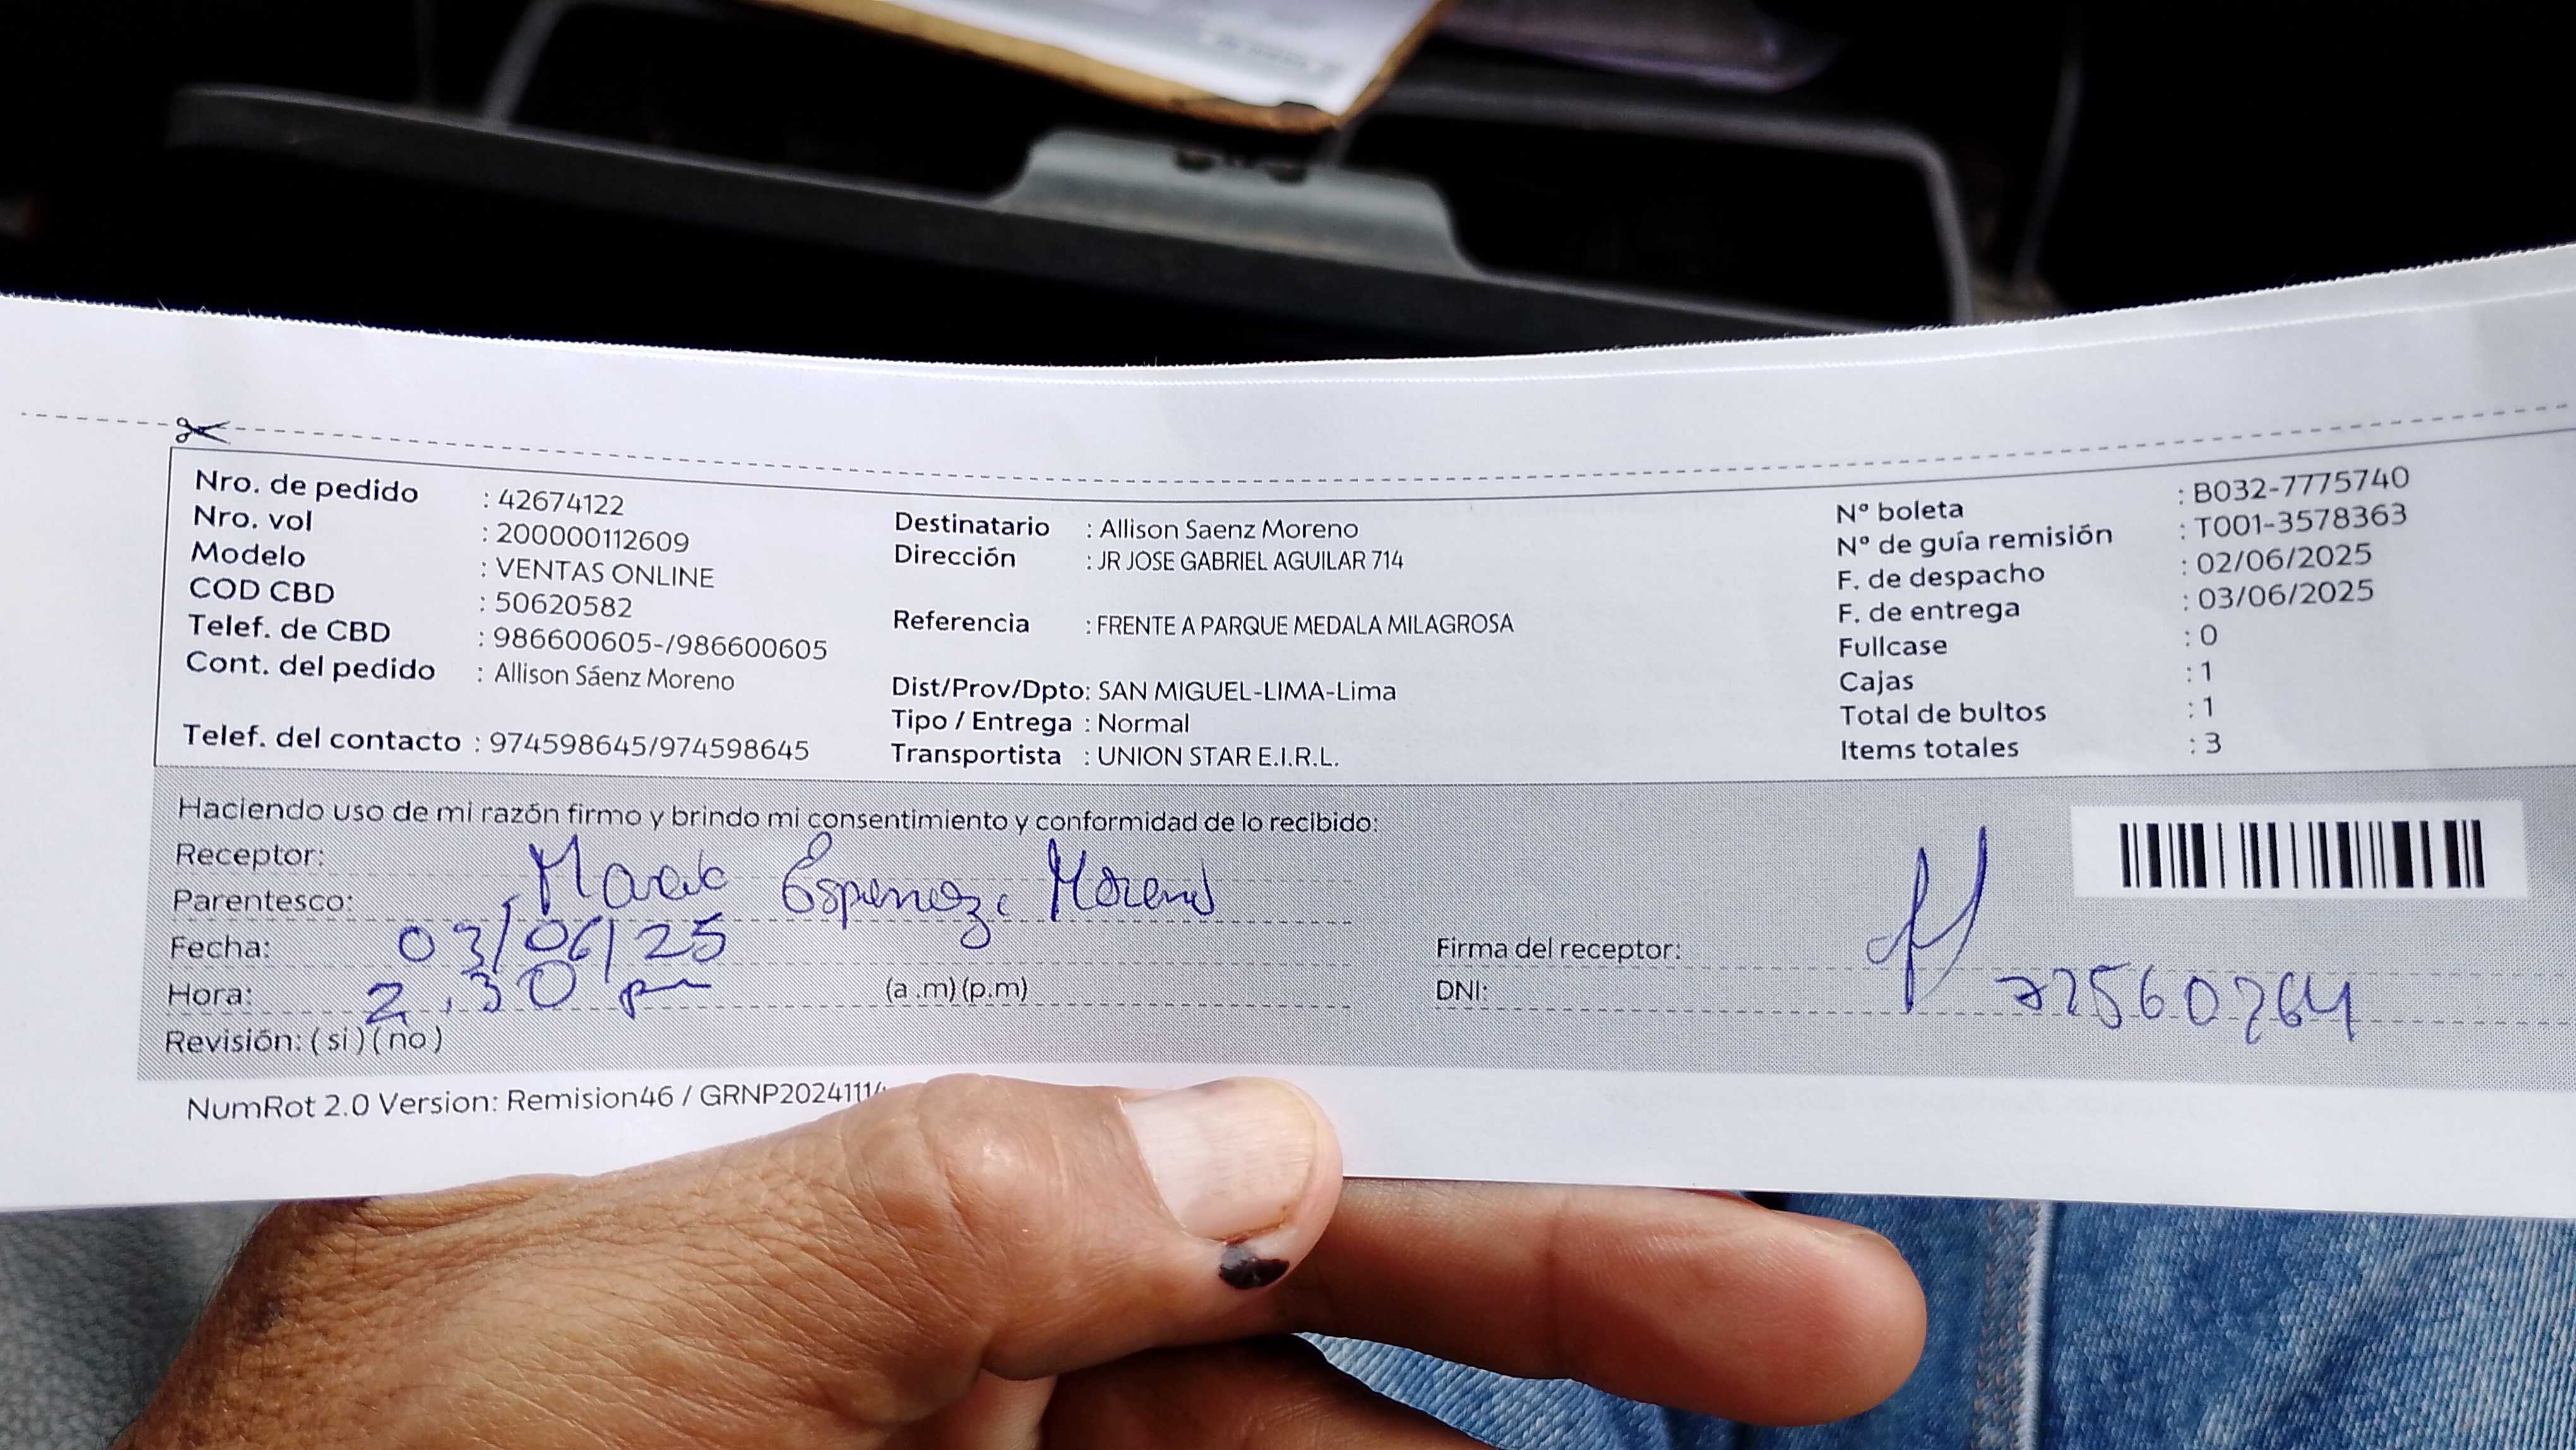 Nro. de pedido : 42674122
Nro. vol : 200000112609
Modelo : VENTAS ONLINE
COD CBD : 50620582
Telef. de CBD : 986600605-/986600605
Cont. del pedido : Allison Sáenz Moreno
Telef. del contacto : 974598645/974598645
Destinatario : Allison Saenz Moreno
Dirección : JR JOSE GABRIEL AGUILAR 714
Referencia : FRENTE A PARQUE MEDALA MILAGROSA
Dist/Prov/Dpto: SAN MIGUEL-LIMA-Lima
Tipo / Entrega : Normal
Transportista : UNION STAR E.I.R.L.
N° boleta : B032-7775740
N° de guía remisión : T001-3578363
F. de despacho : 02/06/2025
F. de entrega : 03/06/2025
Fullcase : 0
Cajas : 1
Total de bultos : 1
Items totales : 3
Haciendo uso de mi razón firmo y brindo mi consentimiento y conformidad de lo recibido:
Receptor:
Parentesco: Moreno
Fecha: 03/06/25
Hora: 2.30 pm (a.m) (p.m)
Revisión: ( si ) ( no )
Firma del receptor:
DNI:
NumRot 2.0 Version: Remision46 / GRNP2024111